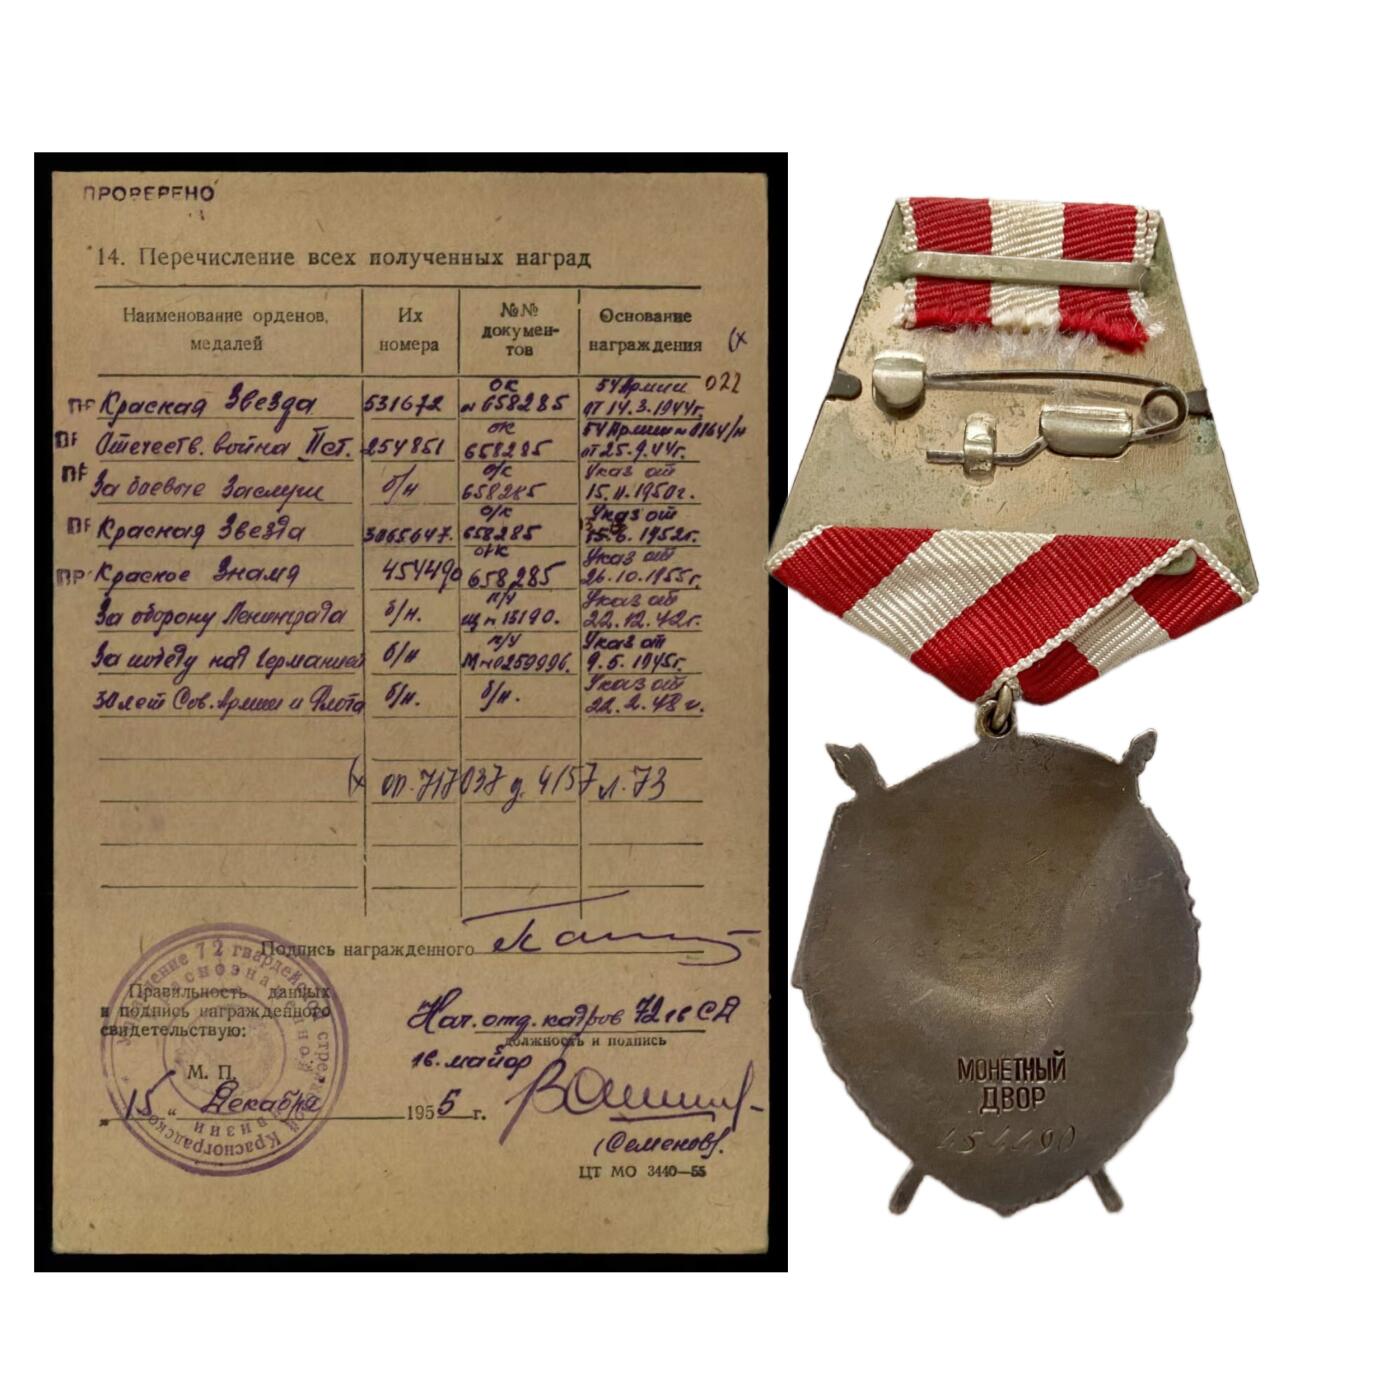 ПРОВЕРЕНО
14. Перечисление всех полученных наград
Наименование орденов, медалей
Их номера
№№ документов
Основание награждения
(х
ПР Красная Звезда 531672 ок № 658285 54 Армии 022 от 14.3.1944г.
ПР Отечеств. война II ст. 254851 ок 658285 54 Армии № 0164/н от 25.9.44г.
ПР За боевые заслуги б/н о/к 658285 Указ от 15.11.1950г.
ПР Красная Звезда 3065647. о/к 658285 Указ от 1952г.
ПР Красное Знамя 454490 о/к 658285 Указ от 26.10.1955г.
За оборону Ленинграда б/н. п/у щ № 15190. Указ от 22.12.42г.
За победу над Германией б/н п/у М № 0259996. Указ от 9.5.1945г.
30 лет Сов. Армии и Флота б/н. б/н. Указ от 22.2.48 г.
(х оп. 717037 д. 4157 л. 73
Подпись награжденного
Правильность данных
и подпись награжденного
свидетельствую:
Нач. отд. кадров 72 гв СД
должность и подпись
гв. майор
М. П.
„15" Декабря 1955 г.
(Семенов).
ЦТ МО 3440—55
Управление 72 гвардейской стрелковой Красноградской Краснознаменной дивизии
МОНЕТНЫЙ
ДВОР
454490